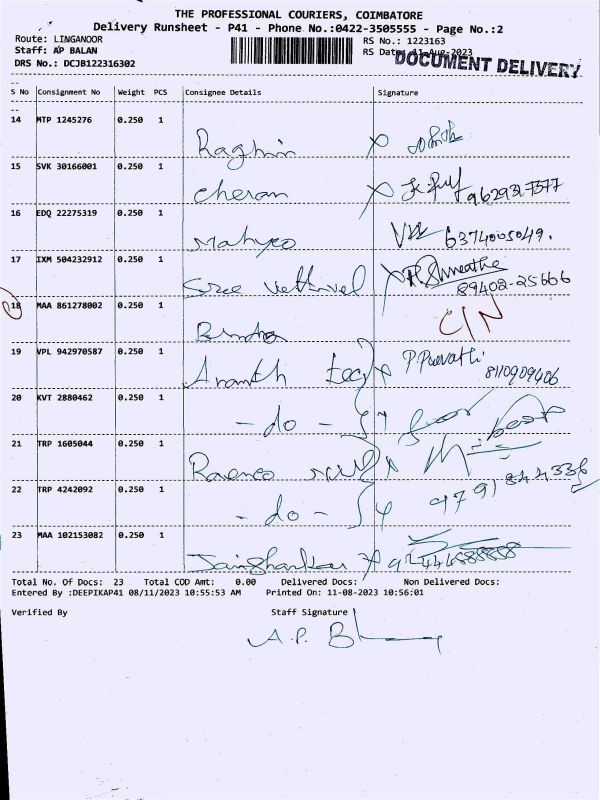 THE PROFESSIONAL COURIERS, COIMBATORE
Delivery Runsheet - P41 - Phone No.:0422-3505555 - Page No.:2
Route: LINGANOOR
RS No.: 1223163
Staff: AP BALAN
RS Date: 11-Aug-2023
DOCUMENT DELIVERY
DRS No.: DCJB122316302
S No Consignment No Weight PCS Consignee Details Signature
14 MTP 1245276 0.250 1
15 SVK 30166001 0.250 1 Cheran 9629327577
16 EDQ 22275319 0.250 1 6374005049.
17 IXM 504232912 0.250 1 Sree Vettrivel 89402-25666
18 MAA 861278002 0.250 1 C/N
19 VPL 942970587 0.250 1 Ananth 8110909406
20 KVT 2880462 0.250 1 - do -
21 TRP 1605044 0.250 1
22 TRP 4242092 0.250 1 - do - 9791844336
23 MAA 102153082 0.250 1 Jaishankar
Total No. Of Docs: 23 Total COD Amt: 0.00 Delivered Docs: Non Delivered Docs:
Entered By :DEEPIKAP41 08/11/2023 10:55:53 AM Printed On: 11-08-2023 10:56:01
Verified By Staff Signature
A.P. B